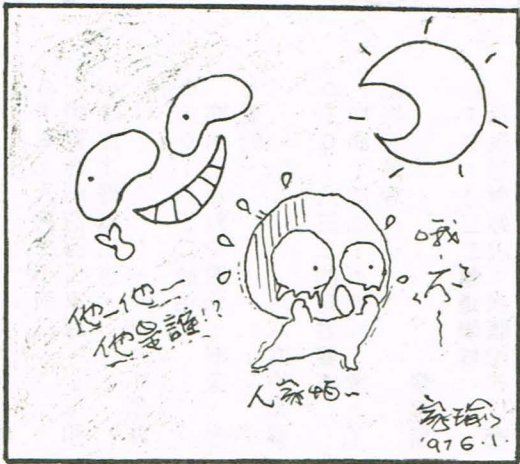 他—他—
他是誰!?
人家怕~
哦~
家瑜
'97 6.1.